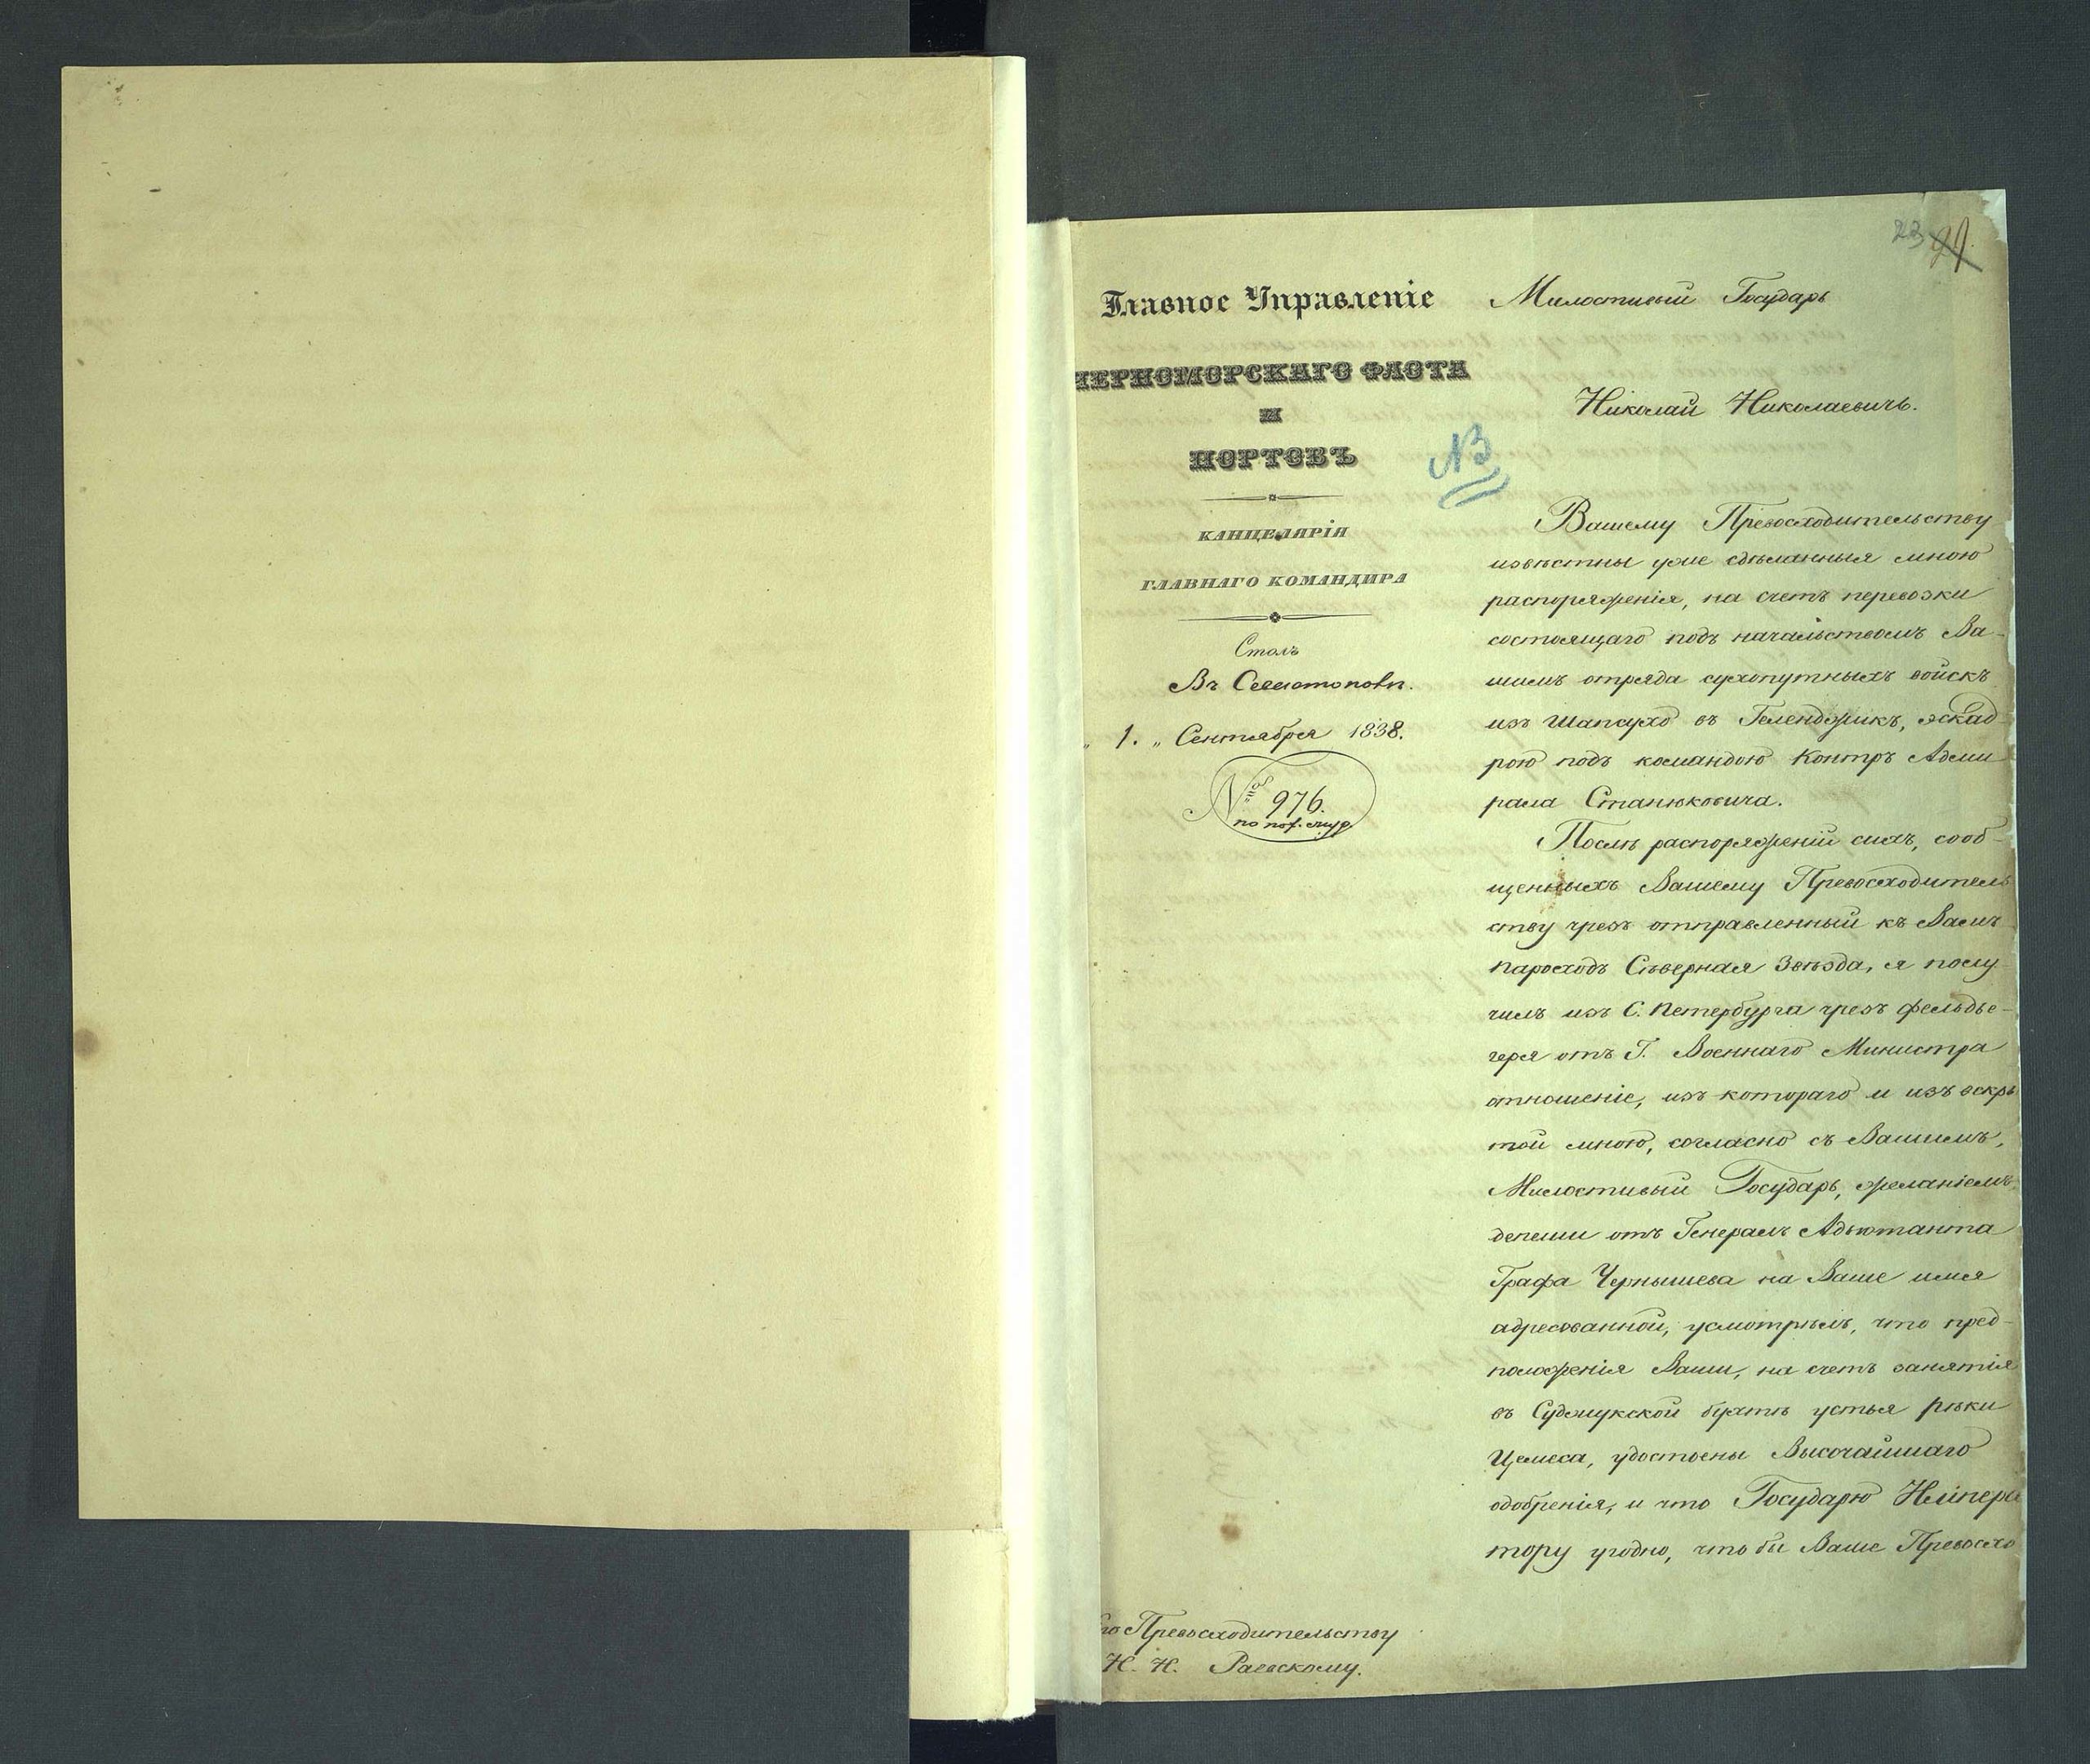 23 99.
Главное Управленіе
ЧЕРНОМОРСКАГО ФЛОТА
И
ПОРТОВЪ
КАНЦЕЛЯРІЯ
ГЛАВНАГО КОМАНДИРА
Столъ
Въ Севастополѣ.
„ 1. „ Сентября 1838.
№ 976.
по
Его Превосходительству
Н. Н. Раевскому.
NB
Милостивый Государь
Николай Николаевичь.
Вашему Превосходительству
извѣстны уже сдѣланныя мною
распоряженія, на счетъ перевозки
состоящаго подъ начальствомъ Ва-
шимъ отряда сухопутныхъ войскъ
изъ Шапсухо въ Геленджикъ, эскад-
рою подъ командою Контръ Адми
рала Станюковича.
Послѣ распоряженій сихъ, сооб-
щенныхъ Вашему Превосходитель
ству чрезъ отправленный къ Вамъ
пароходъ Сѣверная Звѣзда, я полу-
чилъ изъ С. Петербурга чрезъ фельдъе-
геря отъ Г. Военнаго Министра
отношеніе, изъ котораго и изъ вскры
той мною, согласно съ Вашимъ,
Милостивый Государь, желаніемъ,
депеши отъ Генералъ Адъютанта
Графа Чернышева на Ваше имя
адресованной, усмотрѣлъ, что пред-
положенія Ваши, на счетъ занятія
въ Суджукской бухтѣ устья рѣки
Цемеса, удостоены Высочайшаго
одобренія, и что Государю Импера
тору угодно, что бы Ваше Превосхо